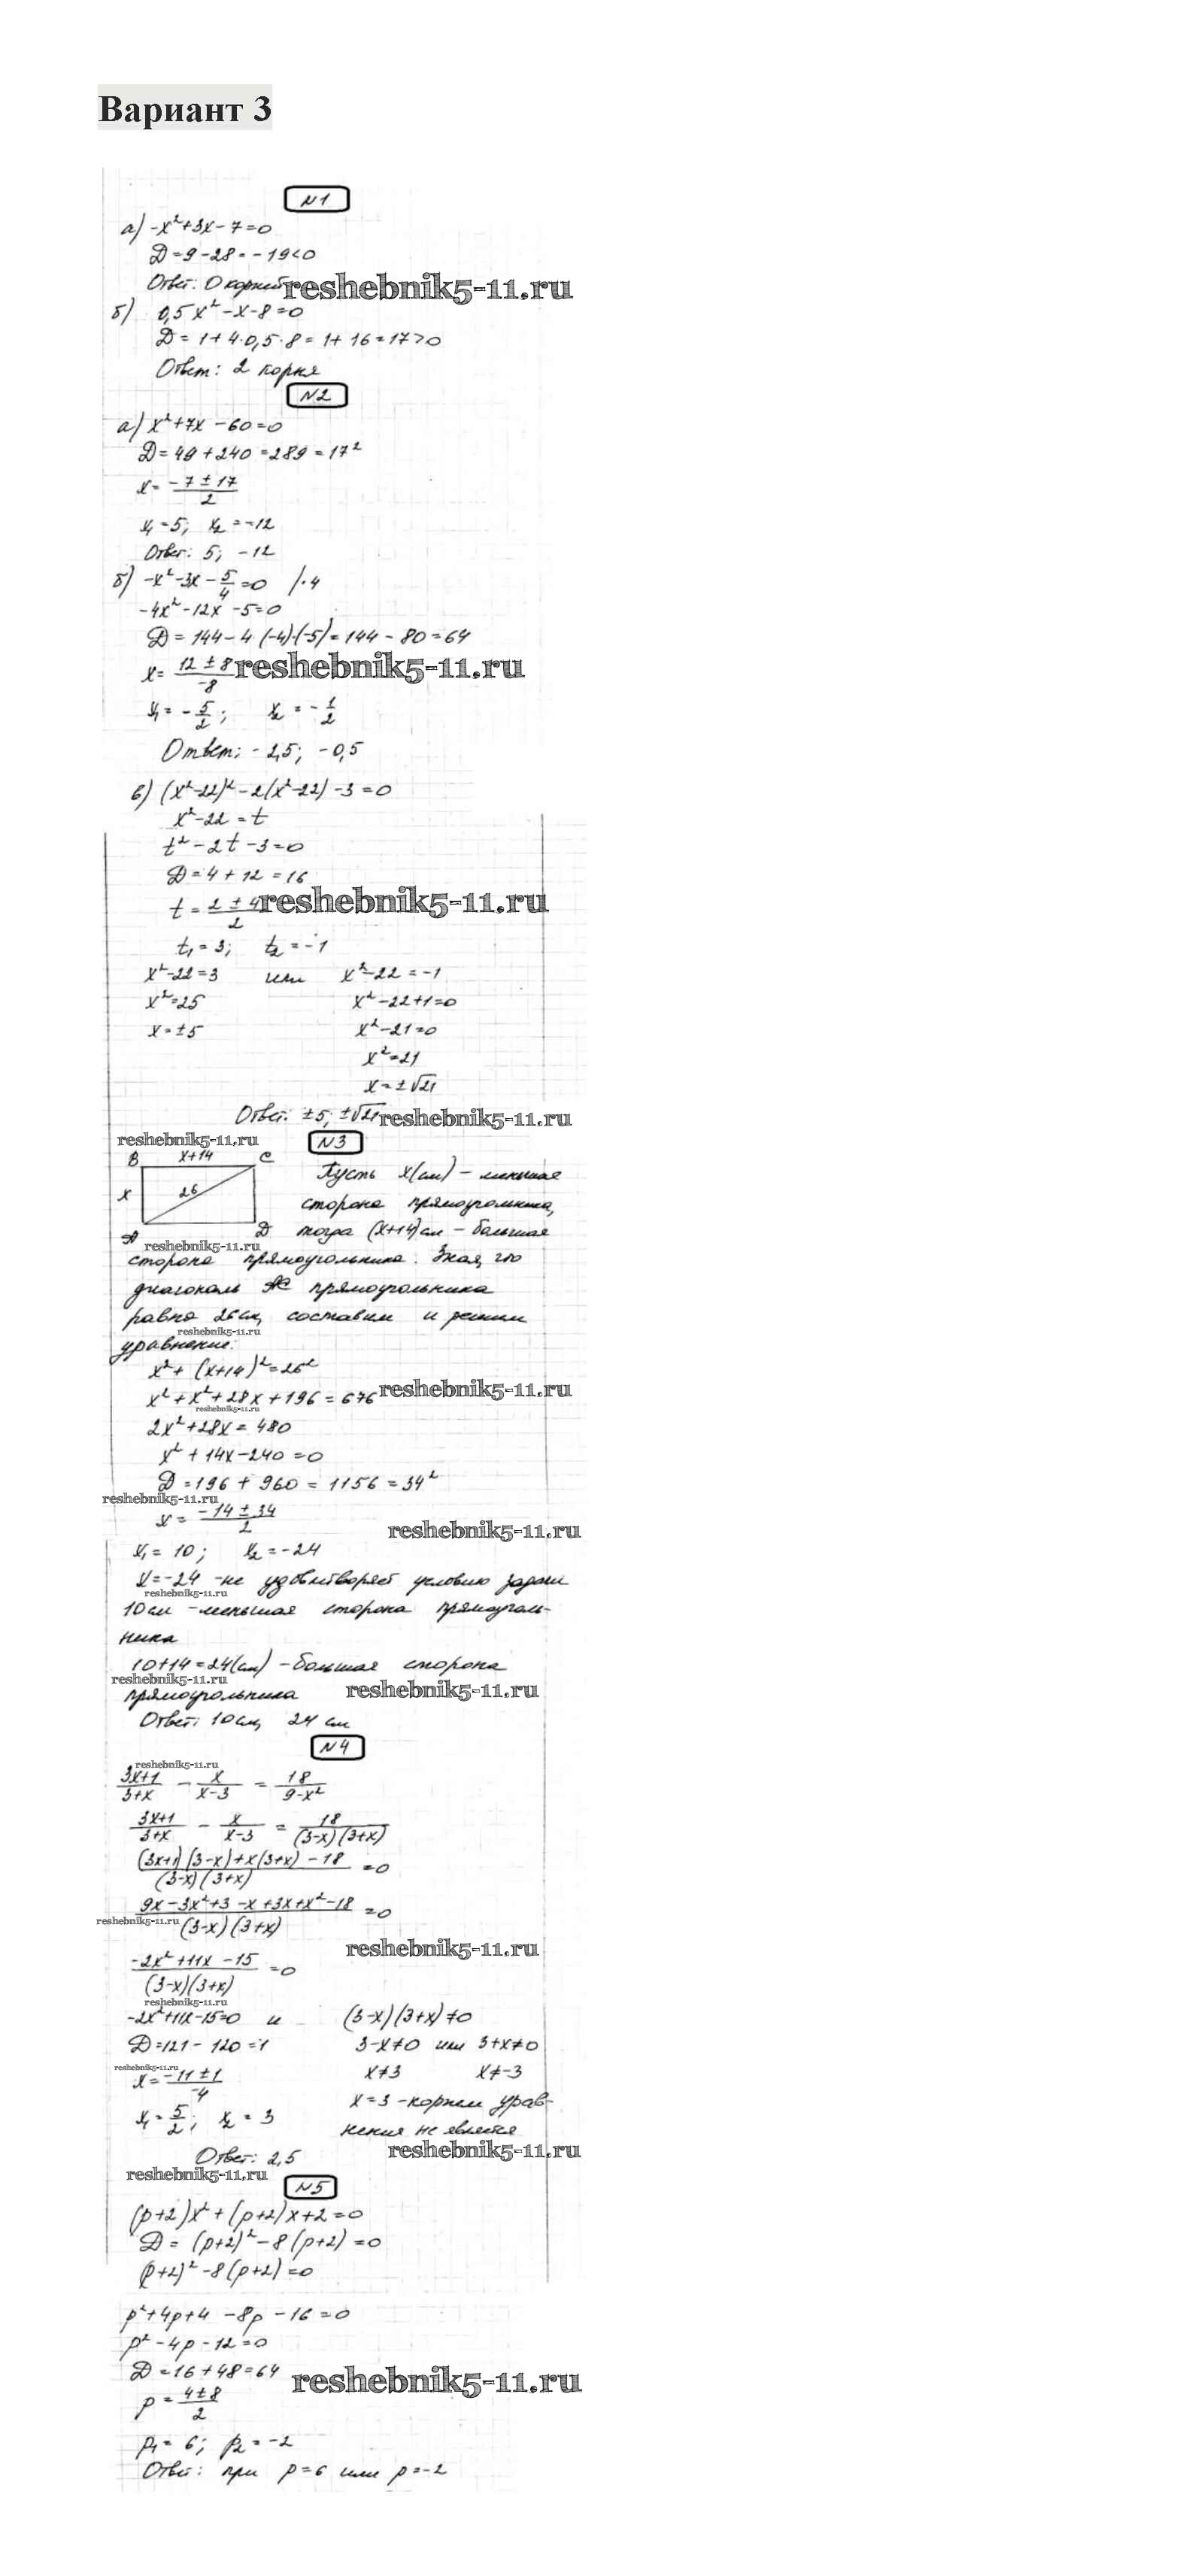 Вариант 3
N1
а) -x²+3x-7=0
D=9-28=-19<0
Ответ: 0 корней
reshebnik5-11.ru
б) 0,5x²-x-8=0
D=1+4·0,5·8=1+16=17>0
Ответ: 2 корня
N2
а) x²+7x-60=0
D=49+240=289=17²
x=(-7±17)/2
x₁=5; x₂=-12
Ответ: 5; -12
б) -x²-3x-5/4=0 /·4
-4x²-12x-5=0
D=144-4·(-4)·(-5)=144-80=64
x=(12±8)/-8
reshebnik5-11.ru
x₁=-5/2; x₂=-1/2
Ответ: -2,5; -0,5
в) (x²-22)²-2(x²-22)-3=0
x²-22=t
t²-2t-3=0
D=4+12=16
t=(2±4)/2
reshebnik5-11.ru
t₁=3; t₂=-1
x²-22=3 или x²-22=-1
x²=25 x²-22+1=0
x=±5 x²-21=0
x²=21
x=±√21
Ответ: ±5; ±√21
reshebnik5-11.ru
reshebnik5-11.ru
N3
B x+14 C
x 26
A D
Пусть x(см) – меньшая
сторона прямоугольника,
тогда (x+14)см – большая
reshebnik5-11.ru
сторона прямоугольника. Зная, что
диагональ AC прямоугольника
равна 26см, составим и решим
reshebnik5-11.ru
уравнение:
x²+(x+14)²=26²
x²+x²+28x+196=676
reshebnik5-11.ru
reshebnik5-11.ru
2x²+28x=480
x²+14x-240=0
D=196+960=1156=34²
reshebnik5-11.ru
x=(-14±34)/2
reshebnik5-11.ru
x₁=10; x₂=-24
x=-24 -не удовлетворяет условию задачи
reshebnik5-11.ru
10см -меньшая сторона прямоуголь-
ника
10+14=24(см) -большая сторона
reshebnik5-11.ru
прямоугольника
reshebnik5-11.ru
Ответ: 10см, 24 см
N4
reshebnik5-11.ru
(3x+1)/(3+x) - x/(x-3) = 18/(9-x²)
(3x+1)/(3+x) - x/(x-3) = 18/((3-x)(3+x))
((3x+1)(3-x)+x(3+x)-18)/((3-x)(3+x))=0
(9x-3x²+3-x+3x+x²-18)/((3-x)(3+x))=0
reshebnik5-11.ru
reshebnik5-11.ru
(-2x²+11x-15)/((3-x)(3+x))=0
reshebnik5-11.ru
-2x²+11x-15=0 и (3-x)(3+x)≠0
D=121-120=1 3-x≠0 или 3+x≠0
reshebnik5-11.ru
x=(-11±1)/-4 x≠3 x≠-3
x₁=5/2; x₂=3 x=3 -корнем урав-
нения не является
Ответ: 2,5
reshebnik5-11.ru
reshebnik5-11.ru
N5
(p+2)x²+(p+2)x+2=0
D=(p+2)²-8(p+2)=0
(p+2)²-8(p+2)=0
p²+4p+4-8p-16=0
p²-4p-12=0
D=16+48=64
reshebnik5-11.ru
p=(4±8)/2
p₁=6; p₂=-2
Ответ: при p=6 или p=-2